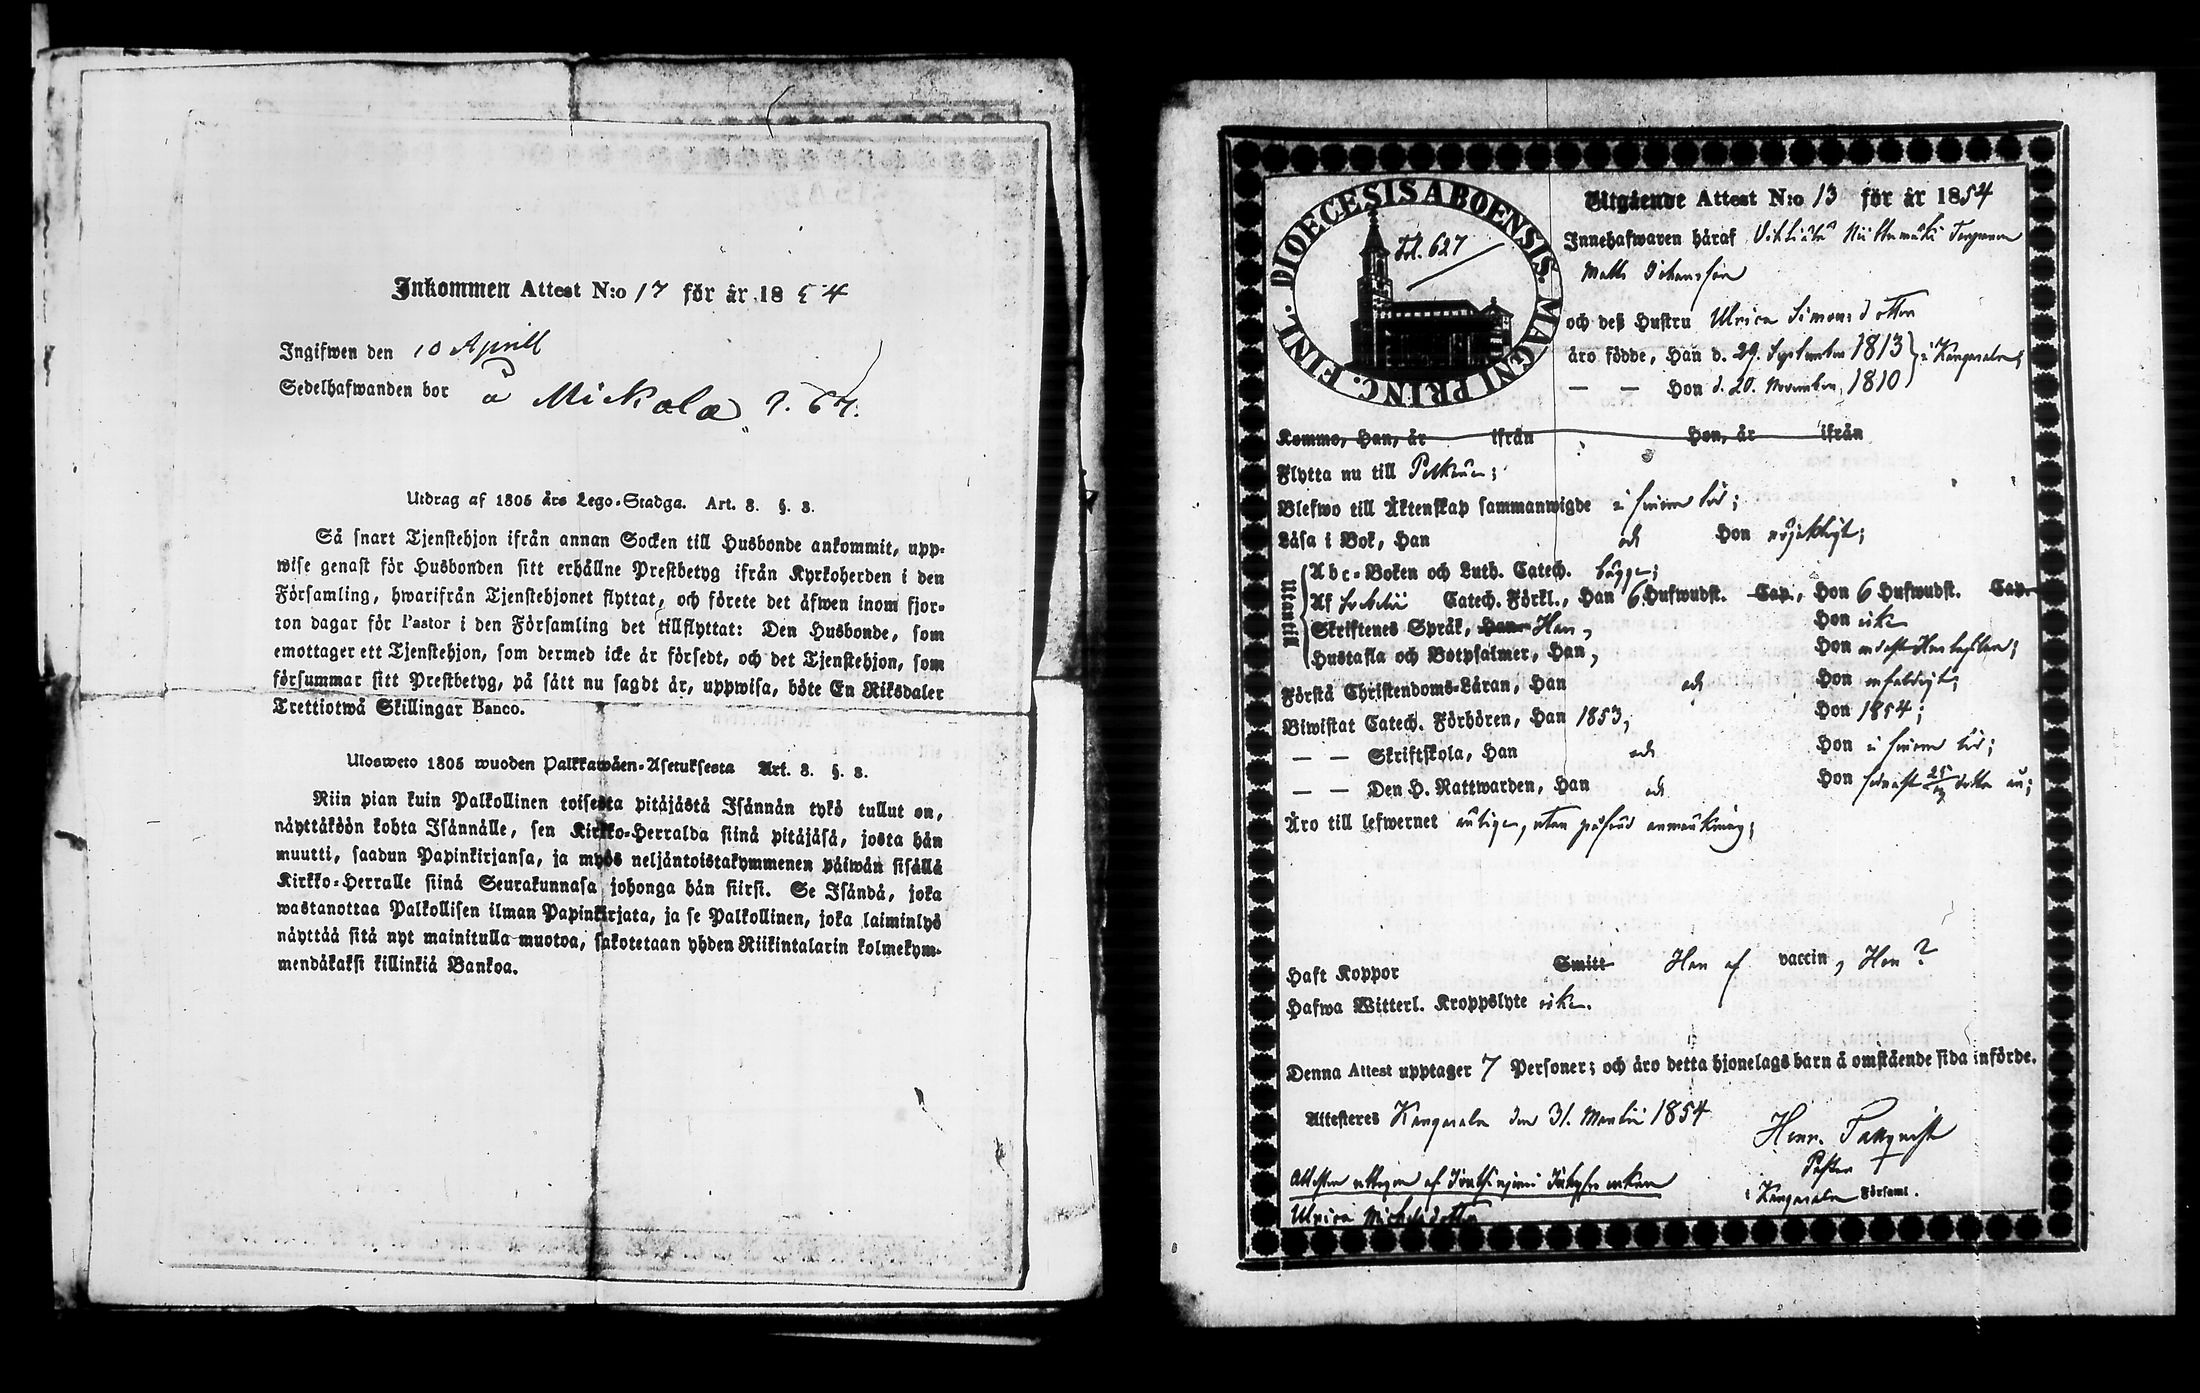 Inkommen Attest N:o 17 för år 1854
Ingifwen den 10 Aprill
Sedelhafwanden bor å Mickola, p. 67.
Utdrag af 1805 års Lego-Stadga. Art. 8. §. 8.
Så snart Tjenstehjon ifrån annan Socken till Husbonde ankommit, upp-
wise genast för Husbonden sitt erhållne Prestbetyg ifrån Kyrkoherden i den
Församling, hwarifrån Tjenstehjonet flyttat, och förete det äfwen inom fjor-
ton dagar för Pastor i den Församling det tillflyttat: Den Husbonde, som
emottager ett Tjenstehjon, som dermed icke är försedt, och det Tjenstehjon, som
försummar sitt Prestbetyg, på sätt nu sagdt är, uppwisa, böte En Riksdaler
Trettiotwå Skillingar Banco.
Ulosweto 1805 wuoden Palkkawäen-Asetuksesta Art. 8. §. 8.
Niin pian kuin Palkollinen toisesta pitäjästä Isännän tykö tullut on,
näyttäköön kohta Isännälle, sen Kirkko-Herralda siinä pitäjäsä, josta hän
muutti, saadun Papinkirjansa, ja myös neljäntoistakymmenen päiwän sisällä
Kirkko-Herralle siinä Seurakunnasa johonga hän siirsi. Se Isändä, joka
wastanottaa Palkollisen ilman Papinkirjata, ja se Palkollinen, joka laiminlyö
näyttää sitä nyt mainitulla muotoa, sakotetaan yhden Riikintalarin kolmekym-
mendäkaksi killinkiä Bankoa.
DIOECESIS ABOENSIS. MAGNI PRINC. FINL.
Fol. 627
Utgående Attest N:o 13 för år 1854
Innehafwaren häraf
Matts Johansson
och deß Hustru Ulrica Simonsdotter
äro födde, Han d. 29. September 1813 } i Kangasala;
— — Hon d. 20. November 1810
Kommo, Han, år ifrån Hon, år ifrån
Flytta nu till Pelkäne;
Blefwo till Äktenskap sammanwigde i sinom tid;
Läsa i Bok, Han och Hon nöjaktigt;
Utantill
Abc-Boken och Luth. Catech. bägge;
Af Catech. Förkl., Han 6 Hufwudst. Cap., Hon 6 Hufwudst. Cap.
Skriftenes Språk, Han, Hon icke
Hustafla och Botpsalmer, Han, Hon
Förstå Christendoms-Läran, Han och Hon
Biwistat Catech. Förhören, Han 1853, Hon 1854;
— — Skriftskola, Han och Hon i sinom tid;
— — Den H. Nattwarden, Han och Hon sednast 25/3 detta år;
Äro till lefwernet ärlige, utan påförd anmärkning;
Haft Koppor Smitt Han af vaccin, Hon ?
Hafwa Witterl. Kroppslyte icke.
Denna Attest upptager 7 Personer; och äro detta hjonelags barn å omstående sida införde.
Attesteres Kangasala den 31. Martii 1854
Henr. Tallqvist
Pastor
i Kangasala Församl.
Ulrica Michelsdotter